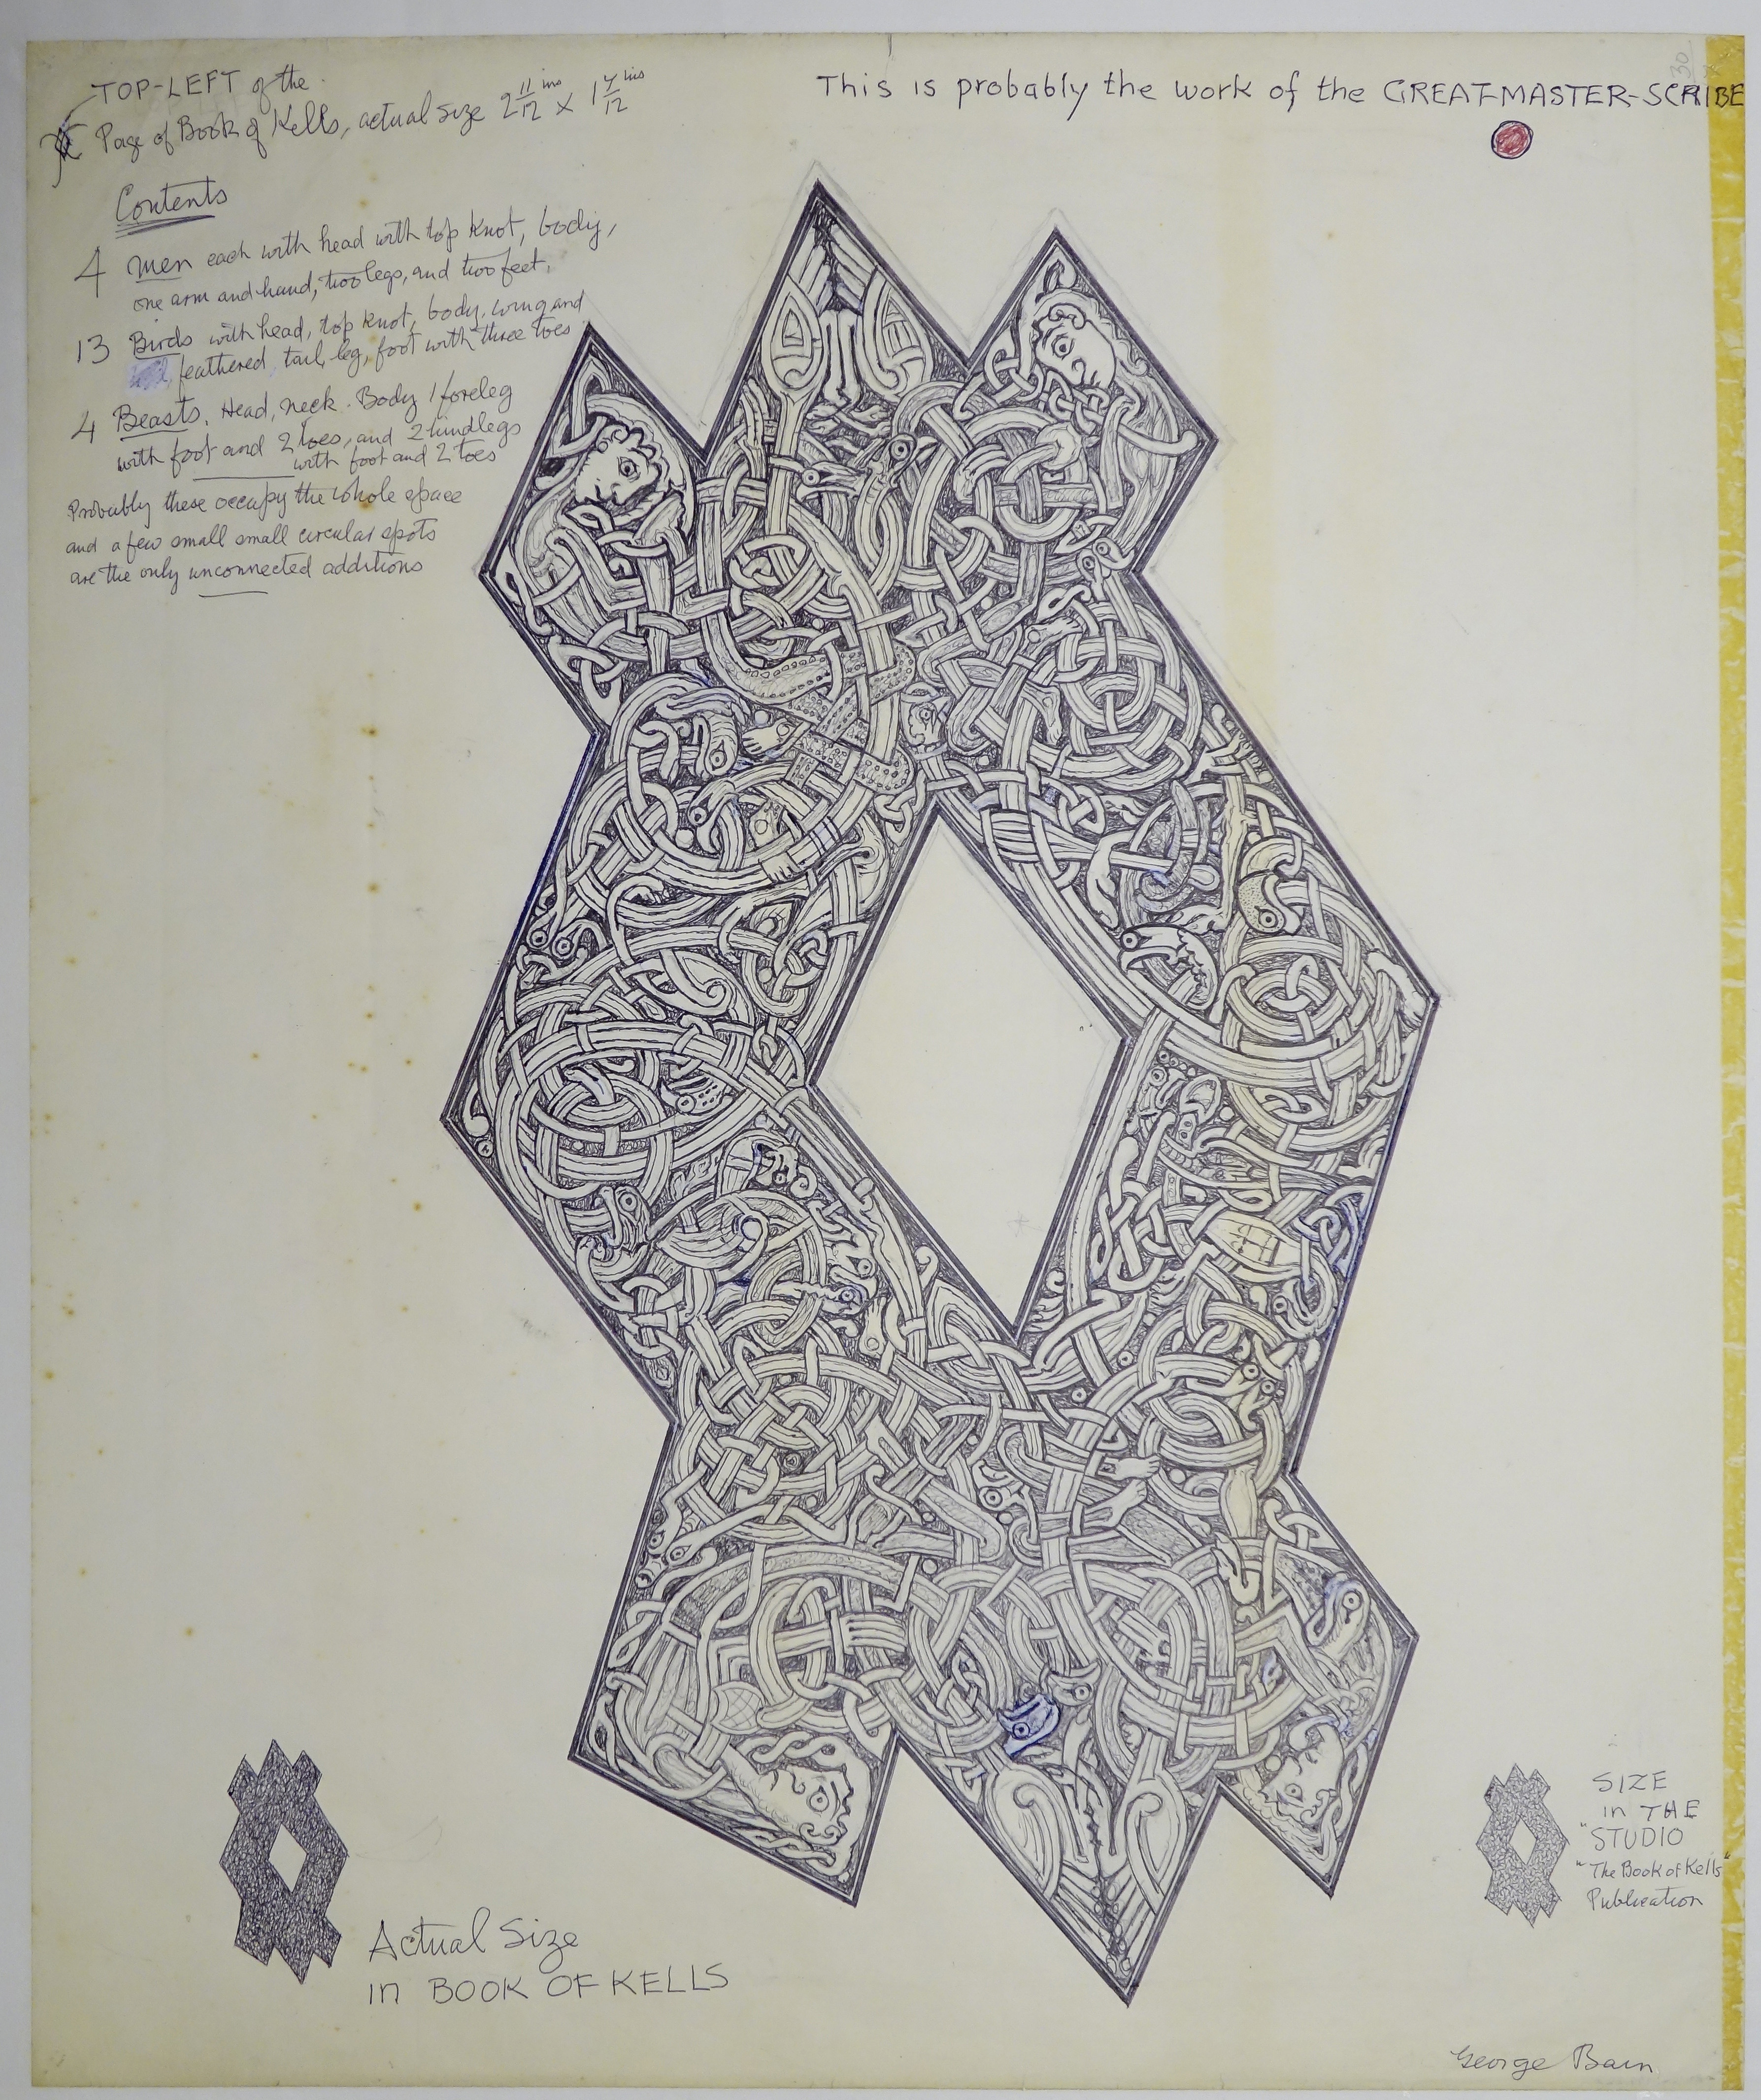 TOP-LEFT of the
Page of Book of Kells, actual size 2 11/12 ins x 1 7/12 ins
This is probably the work of the GREAT-MASTER-SCRIBE
30
Contents
4 Men each with head with top knot, body,
one arm and hand, two legs, and two feet.
13 Birds with head, top knot, body, wing and
feathered tail, leg, foot with three toes
4 Beasts. Head, neck. Body 1 foreleg
with foot and 2 toes, and 2 hindlegs
with foot and 2 toes
Probably these occupy the whole space
and a few small small circular spots
are the only unconnected additions
Actual Size
in BOOK OF KELLS
SIZE
in THE
"STUDIO
"The Book of Kells"
Publication
George Bain